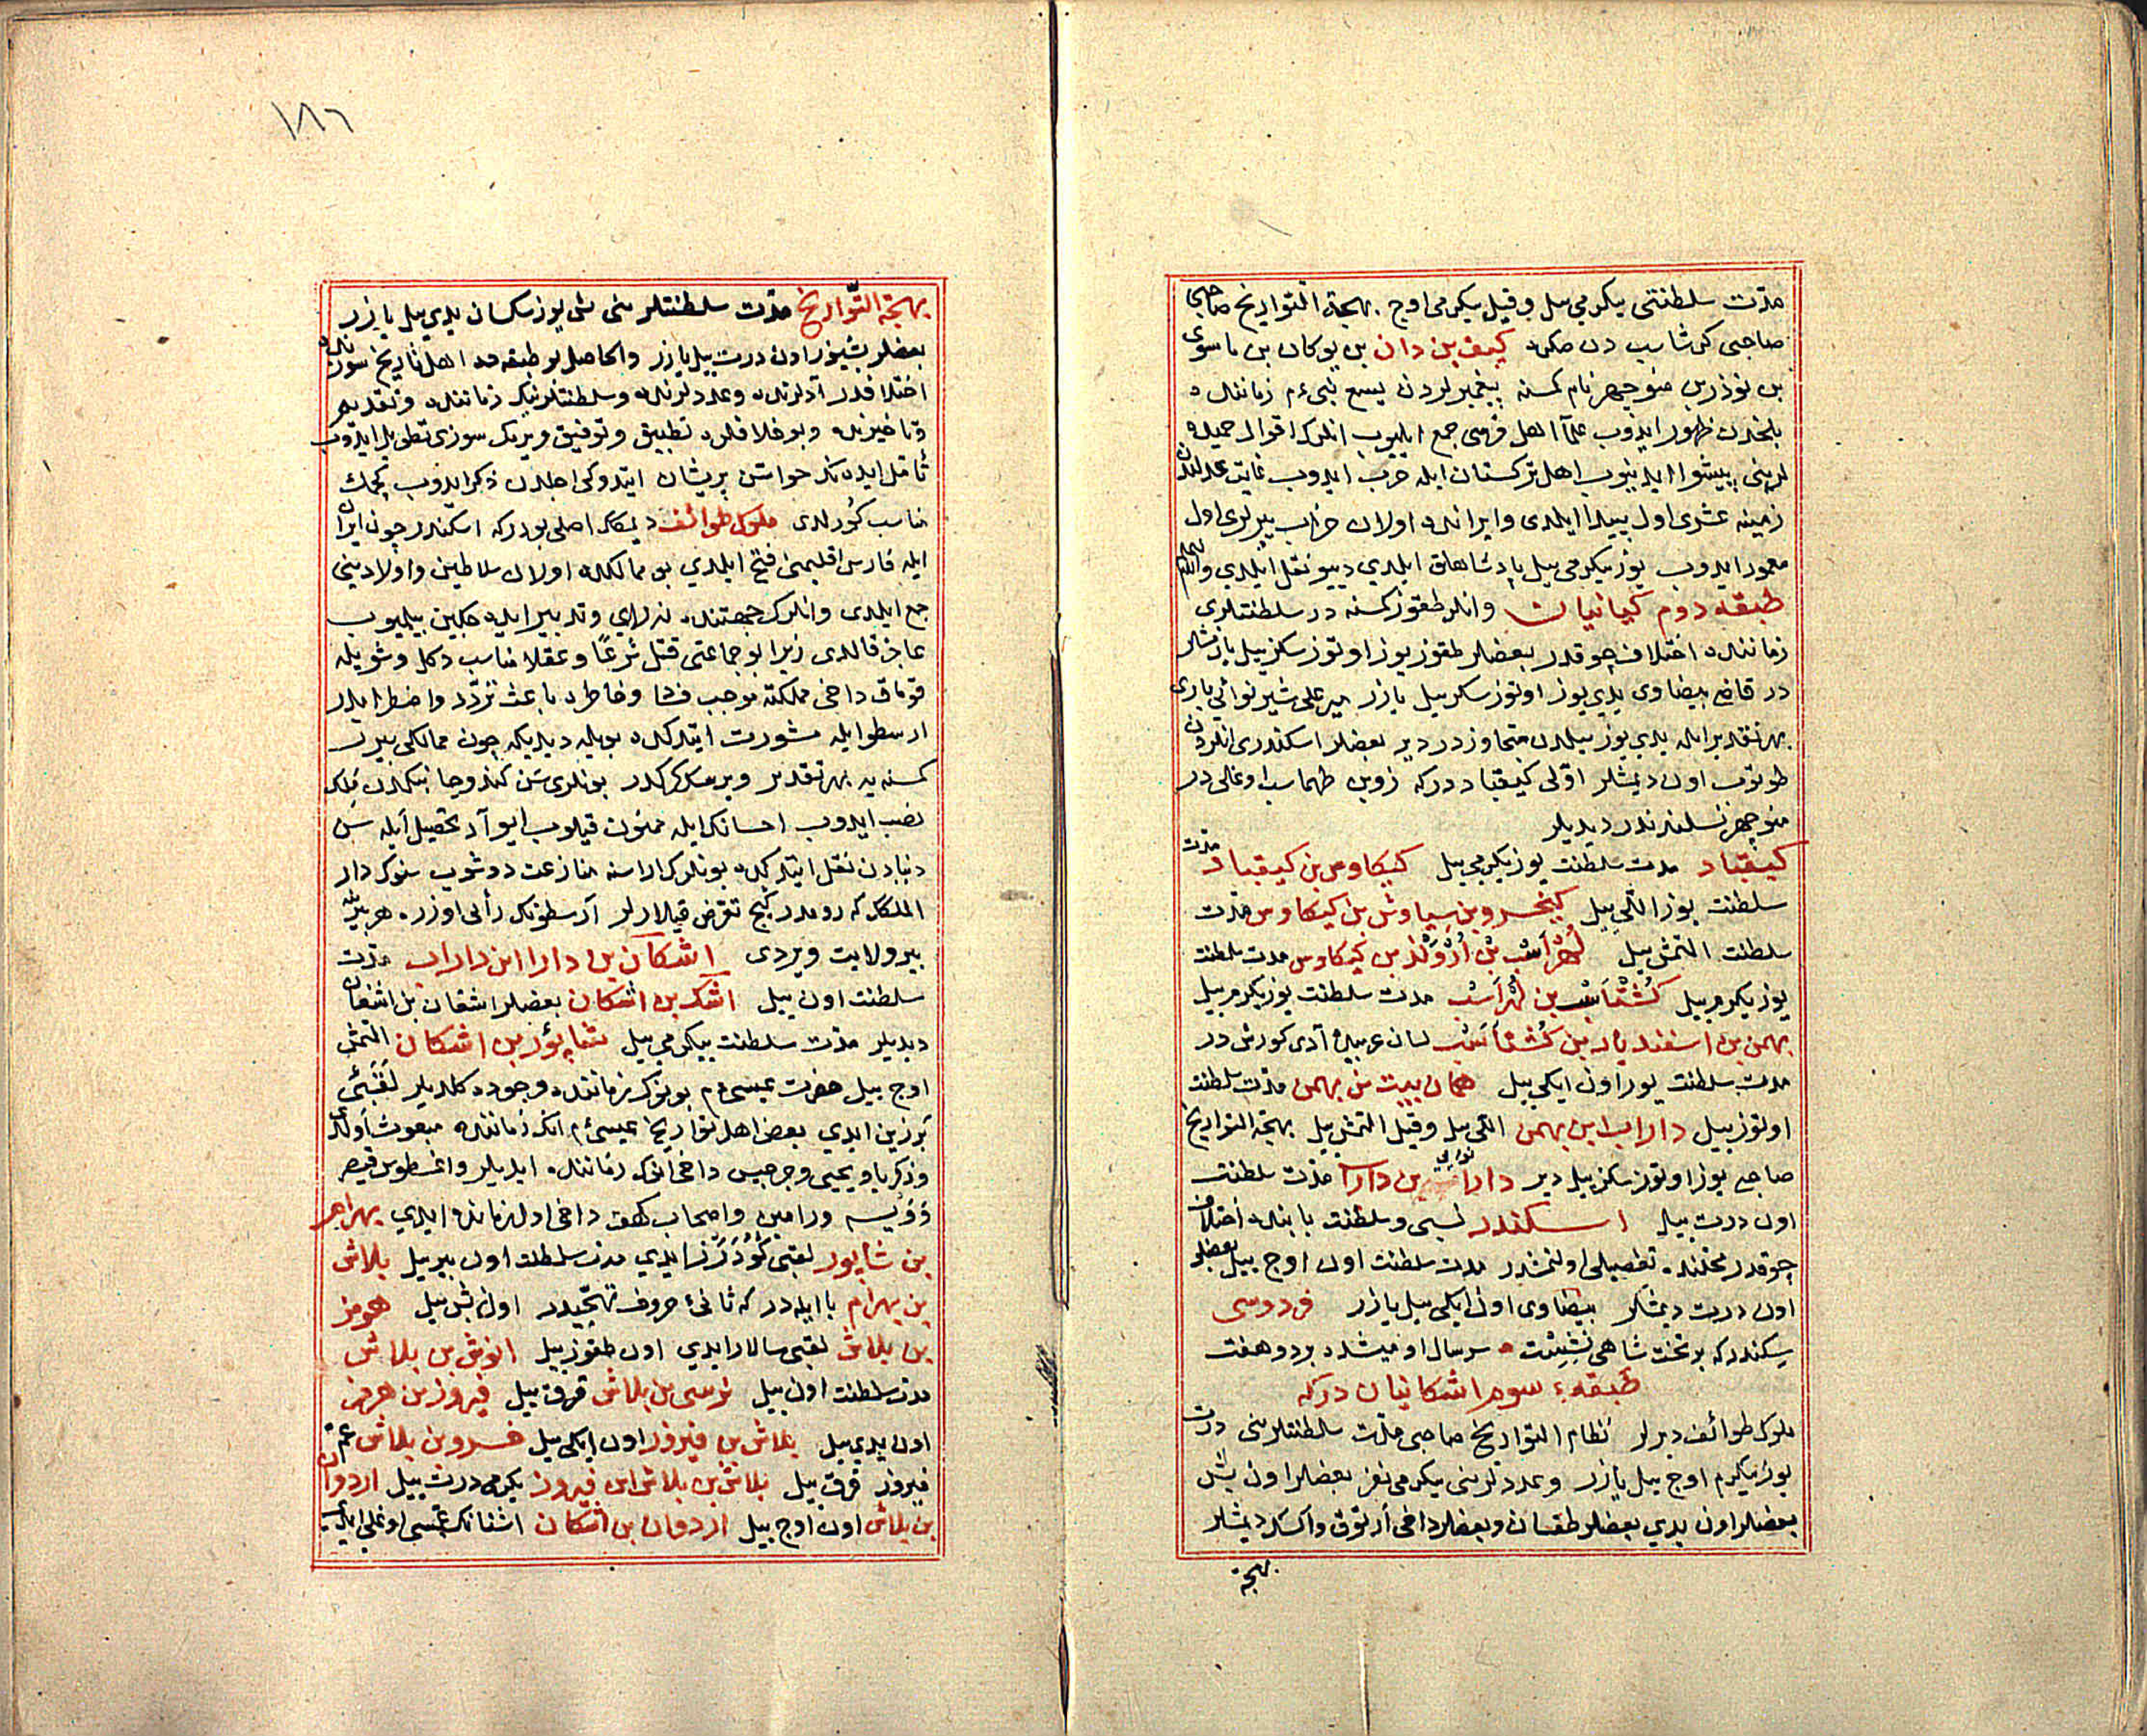 مدّت سلطنتی یکرمی ییل و قیل یکرمی اوچ بهجة التواریخ صاحبی
صاحبی کرشاسب دن صکره کیف بن دان بن یوکان بن ماسوی
بن نوذر بن منوچهر نام کمسنه پیغمبرلردن یسع نبی ءم زماننده
بلخدن ظهور ایدوب علمآ اهل فرسی جمع ایلیوب انلرک اقوال حمیده
لرینی پیشوا ایدینوب اهل ترکستان ایله حرب ایدوب غایت عدلندن
زمینه عشری اول پیدا ایلدی و ایرانده اولان خراب یرلری اول
معمور ایدوب یوز یکرمی ییل پادشاهلق ایلدی دیو نقل ایلدی والله اعلم
طبقه دوم کیانیان و انلر طقوز کمسنه در سلطنتلری
زماننده اختلاف چوقدر بعضلر طقوز یوز اوتوز سکز ییل یازمشلر
در قاضی بیضاوی یدی یوز اوتوز سکز ییل یازر میر علی شیر نوائی یازی
بهر تقدیر ایله یدی یوز ییلدن متجاوزدر دیر بعضلر اسکندری انلردن
طوتوب اون دیمشلر اوّلی کیقباد درکه زوبن طهماسب اوغلی در
منوچهر نسلندندر دیدیلر
کیقباد مدت سلطنت یوز یکرمی ییل کیکاوس بن کیقباد مدّت
سلطنت یوز اللی ییل کیخسرو بن سیاوش بن کیکاوس مدّت
سلطنت التمش ییل لُهْرَاسْب بن اُرْوَنْد بن کیکاوس مدت سلطنت
یوز یکرمی ییل کُشْتَاسْب بن لُهْرَاسْب مدت سلطنت یوز یکرمی ییل
بهمن بن اسفندیار بن کُشْتَاسْب لسان عربیده آدی کورش در
مدت سلطنت یوز اون ایکی ییل همان بیت بن بهمن مدّت سلطنت
اوتوز ییل داراب ابن بهمن اللی ییل و قیل التمش ییل بهجة التواریخ
صاحبی یوز اوتوز سکز ییل دیر دارا بن دارا مدّت سلطنت
اون درت ییل اسکندر نسبی و سلطنت بابنده اختلاف
چوقدر محلنده تفصیلی اولنمشدر مدت سلطنت اون اوچ ییل بعضلر
اون درت دیمشلر بیضاوی اون ایکی ییل یازر فردوسی
سکندر که بر تخت شاهی نشست سر سال او میشد بر دو هفت
طبقهء سوم اشکانیان درکه
ملوک طوائف دیرلر نظام التواریخ صاحبی مدّت سلطنتلرینی درت
یوز یکرمی اوچ ییل یازر و عددلرینی یکرمی نفر بعضلر اون بش
بعضلر اون یدی بعضلر طقسان و بعضلر داخی ارتوق و اکسک دیمشلر
بهجة
١٨٦
بهجة التّواریخ مدّت سلطنتلرینی بش یوز سکسان یدی ییل یازر
بعضلر بشیوز اون درت ییل یازر والحاصل بو طبقه ده اهل تاریخ سوزنده
اختلافدر آدلرنده و عددلرنده و سلطنتلرینک زماننده و تقدیم
و تاخیرنده و بو خلافلره تطبیق و توفیق ویرمک سوزی تطویل ایدوب
تأمل ایدنک حواسن پریشان ایتدوکی اجلدن ذکر ایدوب کچمک
مناسب کورلدی ملوک طوائف دیمکک اصلی بودرکه اسکندر چون ایران
ایله فارس اقلیمنی فتح ایلدی بو ممالکده اولان سلاطین و اولادینی
جمع ایلدی و انلرک جهتنده نه رای و تدبیر ایده جکین بیلمیوب
عاجز قالدی زیرا بو جماعتی قتل شرعًا و عقلا مناسب دکل و شویله
قوماق داخی مملکته موجب فسا و خاطره باعث تردّد و اضطرابدر
ارسطو ایله مشورت ایتدکده بویله دیدیکه چون ممالکی بیر
کمسنه یه بهر تقدیر ویرمک کرکدر بونلری سن کندو جانبکدن ملک
نصب ایدوب احسانک ایله ممنون قیلوب ایو آد تحصیل ایله سن
دنیادن نقل ایتدکده بونلرک اراسنه منازعت دوشوب سنوک دار
الملکک که رومدر کیچ تعرض قیلارلر ارسطونک رأیی اوزره هر بیرینه
بیر ولایت ویردی اشکان بن دارا ابن داراب مدّت
سلطنت اون ییل اشک بن اشکان بعضلر اشقان بن اشغان
دیدیلر مدّت سلطنت یکرمی ییل شاپور بن اشکان التمش
اوچ ییل حضرت عیسی ءم بونوک زماننده وجوده کلدیلر لقبی
برزین ایدی بعض اهل تواریخ عیسی ءم انک زماننده مبعوث اولدی
و زکریا و یحیی و جرجیس داخی انک زماننده ایدیلر و اغسطوس قیصر
و ویسه و رامین و اصحاب کهف داخی اول زمانده ایدی بهرام
بن شاپور لقبی کُودَرْز ایدی مدت سلطنت اون بیر ییل بلاش
بن بهرام با ایله در که ثانیء حروف تهجّیدر اون بش ییل هرمز
بن بلاش لقبی سالار ایدی اون طقوز ییل انوش بن بلاش
مدت سلطنت اون ییل نرسی بن بلاش قرق ییل فیروز بن هرمز
اون یدی ییل بلاش بن فیروز اون ایکی ییل خسرو بن بلاش عم
فیروز قرق ییل بلاش بن بلاش ابن فیروز یکرمی درت ییل اردوان
بن بلاش اون اوچ ییل اردوان بن اشکان اشغانک عمّسی اوغلی ایدی